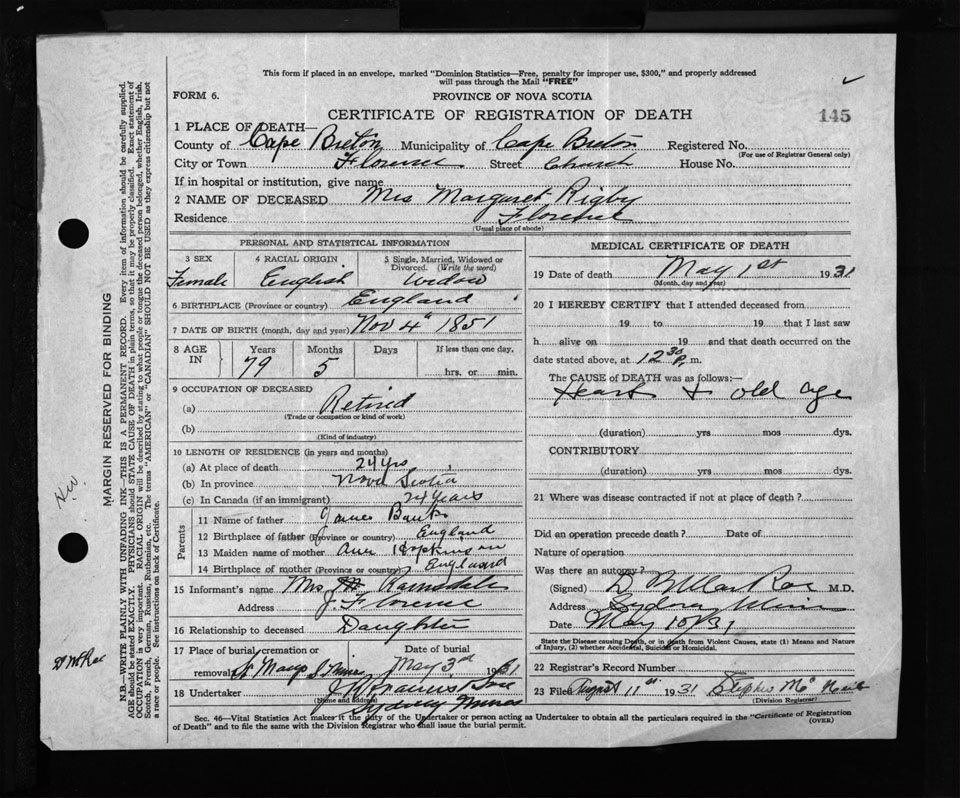 This form if placed in an envelope, marked "Dominion Statistics—Free, penalty for improper use, $300," and properly addressed
will pass through the Mail "FREE"
FORM 6.
PROVINCE OF NOVA SCOTIA
145
CERTIFICATE OF REGISTRATION OF DEATH
1 PLACE OF DEATH—
County of Cape Breton Municipality of Cape Breton Registered No.
(For use of Registrar General only)
City or Town Florence Street Church House No.
If in hospital or institution, give name
2 NAME OF DECEASED Mrs Margaret Rigby
Residence Florence
(Usual place of abode)
PERSONAL AND STATISTICAL INFORMATION
3 SEX 4 RACIAL ORIGIN 5 Single, Married, Widowed or Divorced. (Write the word)
Female English Widow
6 BIRTHPLACE (Province or country) England
7 DATE OF BIRTH (month, day and year) Nov 4th 1851
8 AGE IN Years Months Days If less than one day.
79 5 hrs. or min.
9 OCCUPATION OF DECEASED
(a) Retired
(Trade or occupation or kind of work)
(b)
(Kind of industry)
10 LENGTH OF RESIDENCE (in years and months)
(a) At place of death 24 yrs
(b) In province Nova Scotia
(c) In Canada (if an immigrant) 24 years
Parents
11 Name of father James Banks
12 Birthplace of father (Province or country) England
13 Maiden name of mother Ann Hopkinson
14 Birthplace of mother (Province or country) England
15 Informant's name Mrs J. Ramsdale
Address Florence
16 Relationship to deceased Daughter
17 Place of burial cremation or removal Date of burial
St Marys S. Mines May 3rd 1931
18 Undertaker
(Name and address)
Sydney Mines
MEDICAL CERTIFICATE OF DEATH
19 Date of death May 1st 1931
(Month, day and year)
20 I HEREBY CERTIFY that I attended deceased from
19 to 19 that I last saw
h alive on 19 and that death occurred on the
date stated above, at 12 30 P. m.
The CAUSE of DEATH was as follows:—
Heart + old age
(duration) yrs mos dys.
CONTRIBUTORY
(duration) yrs mos dys.
21 Where was disease contracted if not at place of death?
Did an operation precede death? Date of
Nature of operation
Was there an autopsy?
(Signed) M.D.
Address Sydney Mines
Date May 10/31
State the Disease causing Death, or in death from Violent Causes, state (1) Means and Nature
of Injury, (2) whether Accidental, Suicidal or Homicidal.
22 Registrar's Record Number
23 Filed August 11th 1931 Stephen McNeil
(Division Registrar)
Sec. 46—Vital Statistics Act makes it the duty of the Undertaker or person acting as Undertaker to obtain all the particulars required in the "Certificate of Registration
of Death" and to file the same with the Division Registrar who shall issue the burial permit.
(OVER)
MARGIN RESERVED FOR BINDING
N.B.—WRITE PLAINLY WITH UNFADING INK—THIS IS A PERMANENT RECORD. Every item of information should be carefully supplied.
AGE should be stated EXACTLY. PHYSICIANS should STATE CAUSE OF DEATH in plain terms, so that it may be properly classified. Exact statement of
OCCUPATION is very important. RACIAL ORIGIN will be described by stating to what people or tongue the deceased person belonged, whether English, Irish,
Scotch, French, German, Russian, Ruthenian, etc. The terms "AMERICAN" or "CANADIAN" SHOULD NOT BE USED as they express citizenship but not
a race or people. See instructions on back of Certificate.